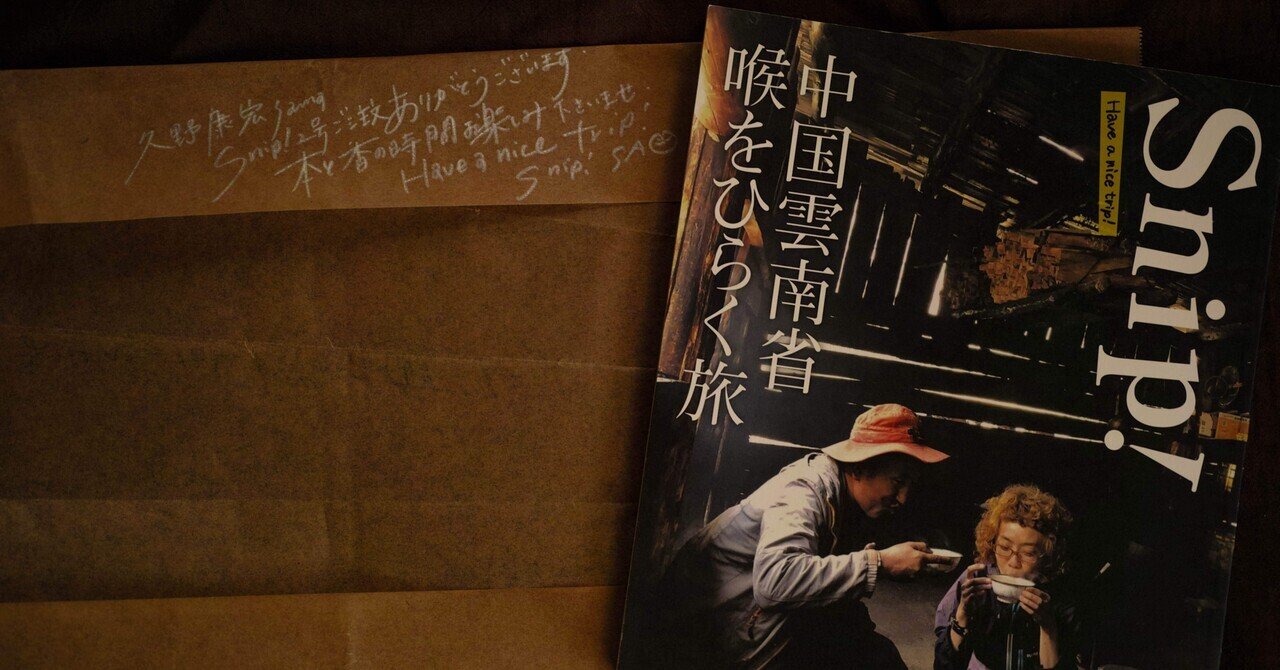 久野康宏sama
Snip!2号ご注文ありがとうございます
本と香の時間お楽しみ下さいませ!
Have a nice trip!
Snip! SAO
Snip!
Have a nice trip!
中国雲南省
喉をひらく旅